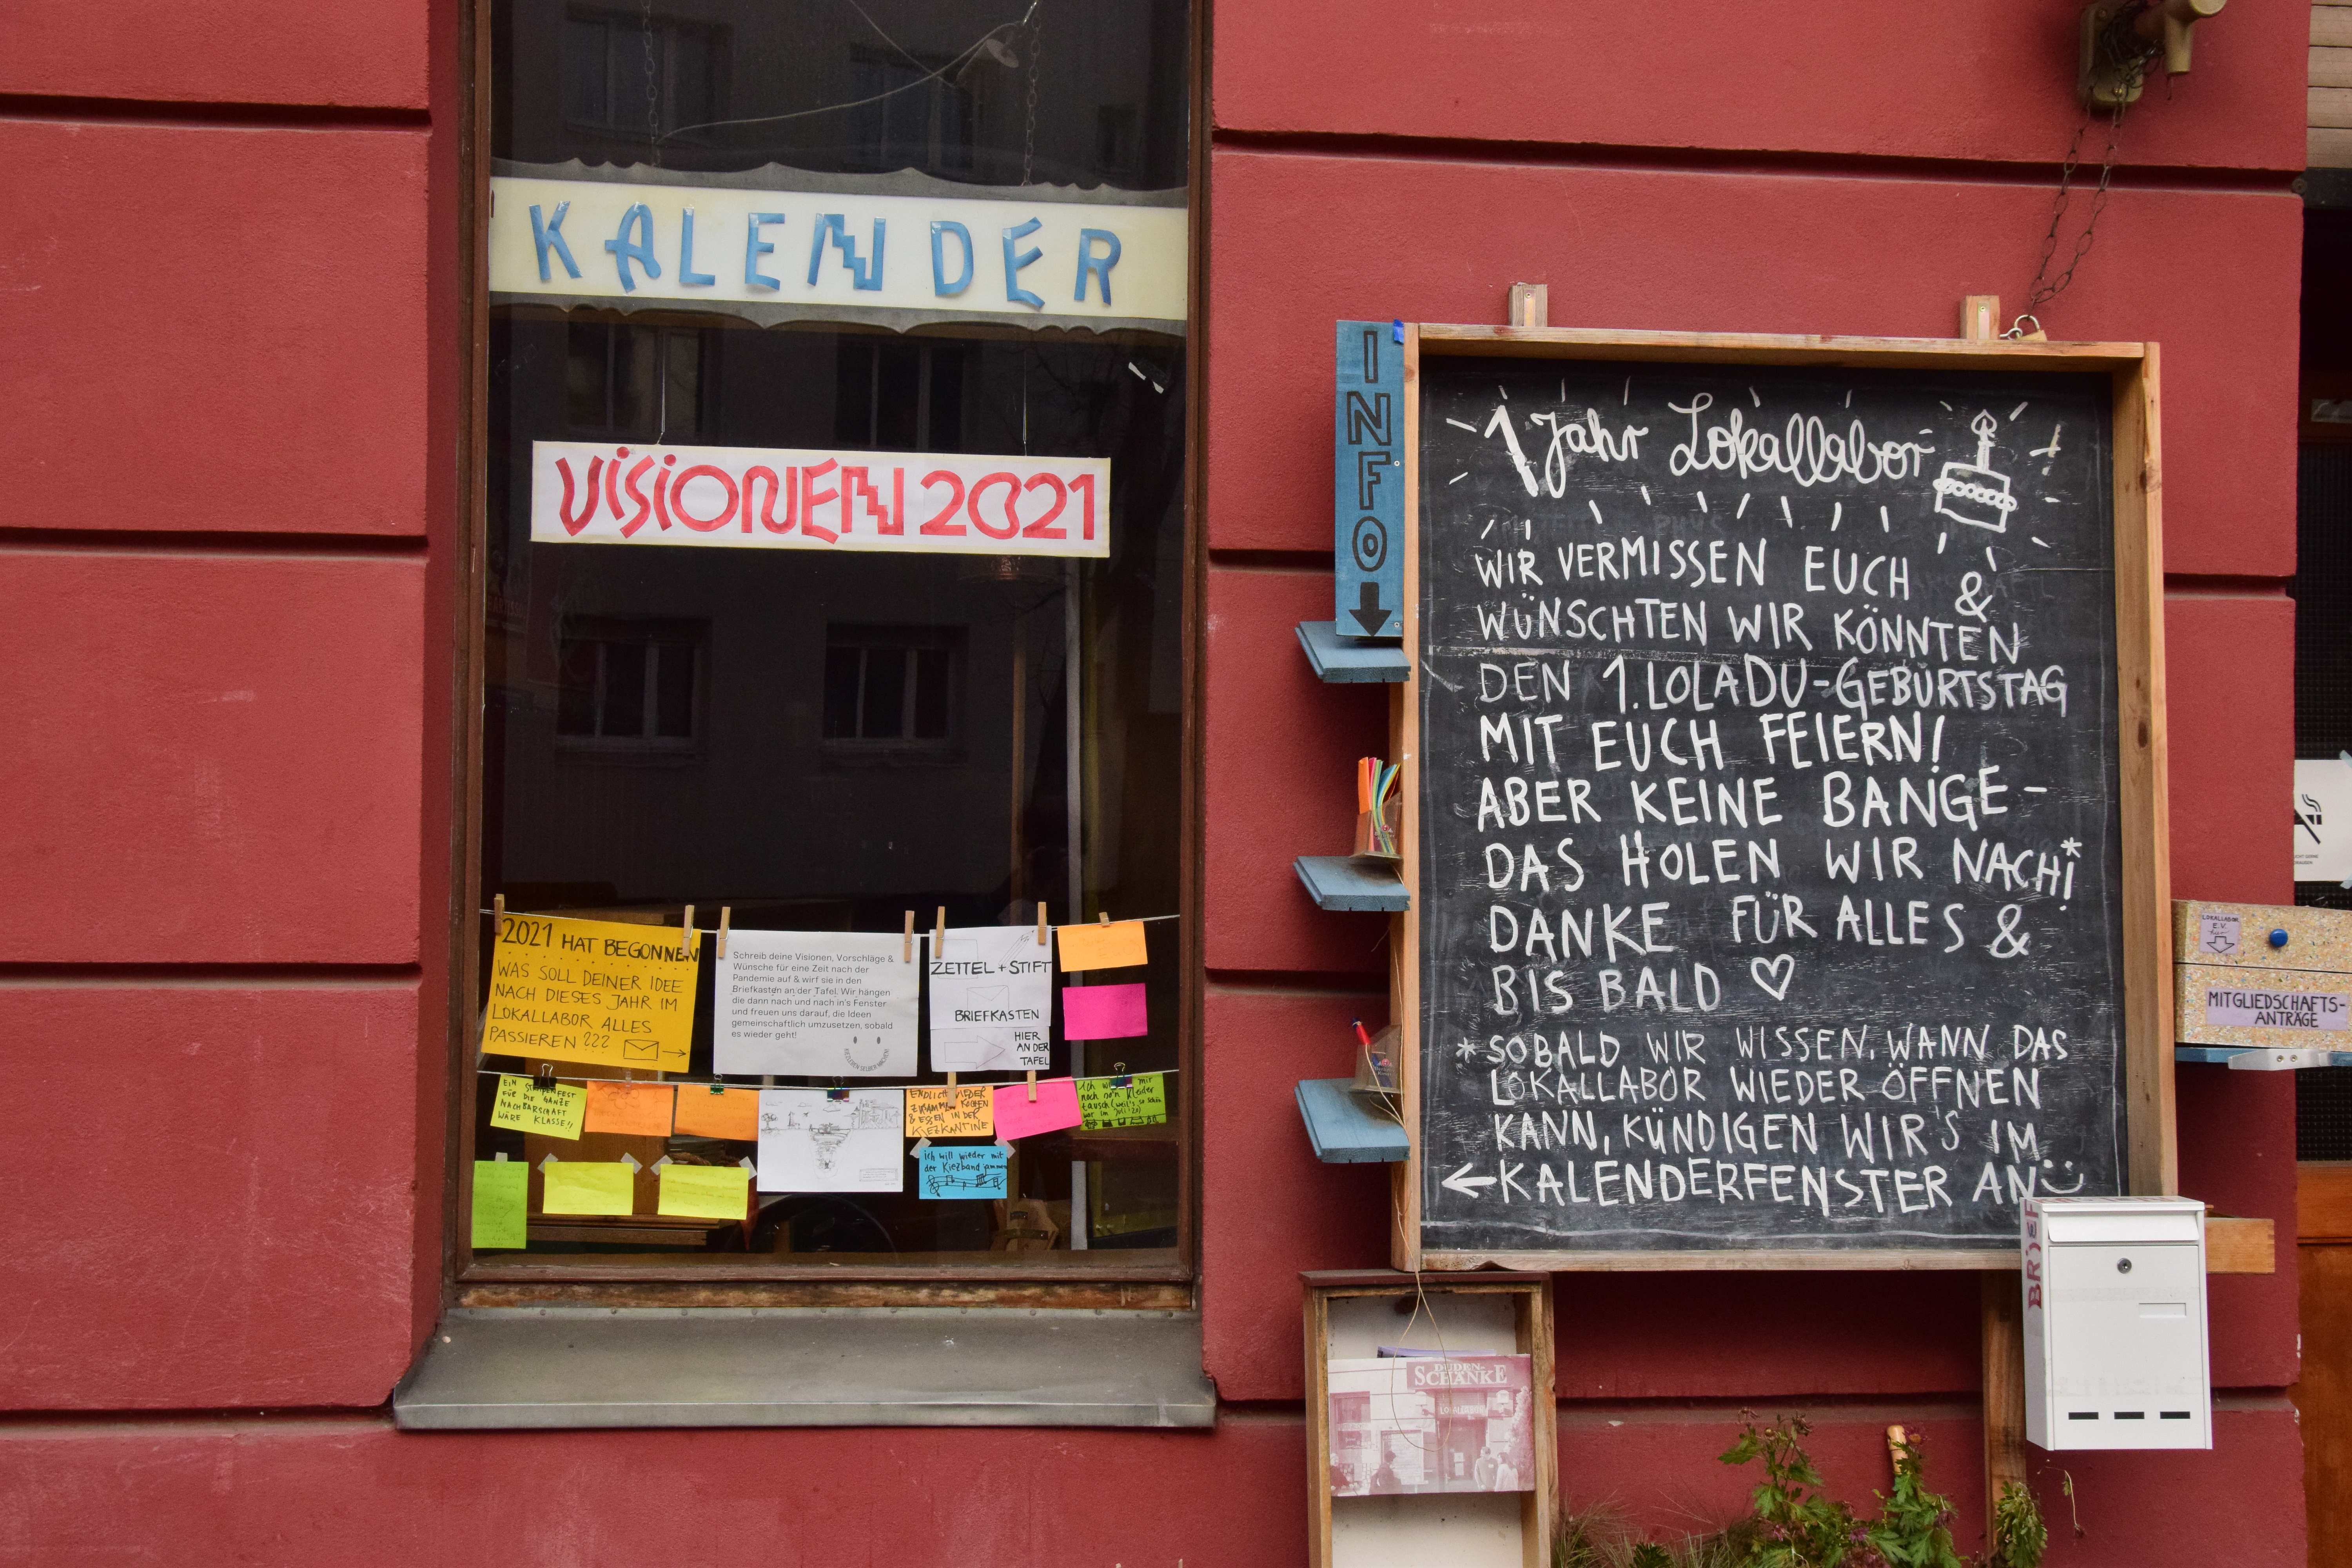 KALENDER
VISIONEN 2021
2021 HAT BEGONNEN
WAS SOLL DEINER IDEE
NACH DIESES JAHR IM
LOKALLABOR ALLES
PASSIEREN ???
Schreib deine Visionen, Vorschläge &
Wünsche für eine Zeit nach der
Pandemie auf & wirf sie in den
Briefkasten an der Tafel. Wir hängen
die dann nach und nach in's Fenster
und freuen uns darauf, die Ideen
gemeinschaftlich umzusetzen, sobald
es wieder geht!
ZETTEL + STIFT
BRIEFKASTEN
HIER
AN DER
TAFEL
EIN
FÜR DIE GANZE
NACHBARSCHAFT
WÄRE KLASSE!!
ENDLICH WIEDER
ZUSAMMEN KOCHEN
& ESSEN IN DER
KIEZKANTINE
ich will wieder mit
der Kiezband jammen
INFO
1 Jahr Lokallabor
WIR VERMISSEN EUCH &
WÜNSCHTEN WIR KÖNNTEN
DEN 1. LOLADU-GEBURTSTAG
MIT EUCH FEIERN!
ABER KEINE BANGE-
DAS HOLEN WIR NACH!*
DANKE FÜR ALLES &
BIS BALD ♡
*SOBALD WIR WISSEN, WANN DAS
LOKALLABOR WIEDER ÖFFNEN
KANN, KÜNDIGEN WIR'S IM
←KALENDERFENSTER AN
BRIEF
DUDEN-
SCHÄNKE
LOKALLABOR
LOKALLABOR
E.V.
hier
MITGLIEDSCHAFTS-
ANTRÄGE